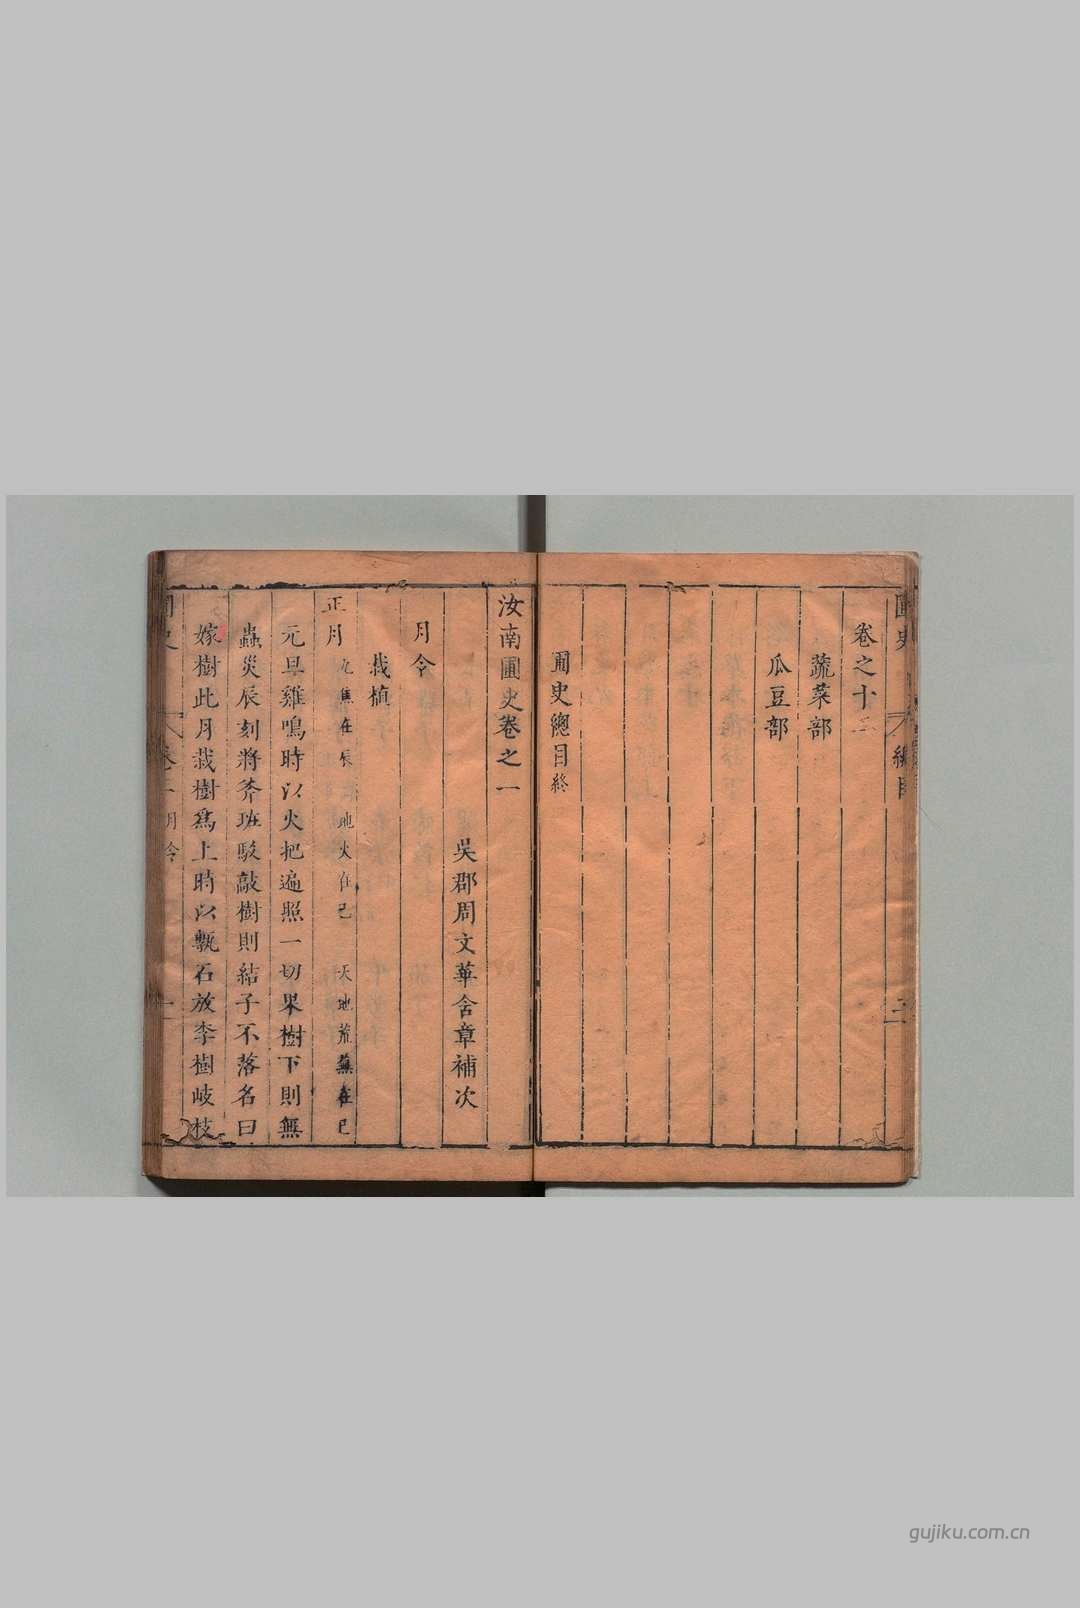 圃史
總目
二
卷之十二
蔬菜部
瓜豆部
圃史總目終
汝南圃史卷之一
吳郡周文華含章補次
月令
栽植
正月 九焦在辰 地火在巳 天地荒蕪在巳
元旦雞鳴時以火把遍照一切果樹下則無
蟲災辰刻將斧班駁敲樹則結子不落名曰
嫁樹此月栽樹爲上時以甎石放李樹岐枝
卷一
月令
一
gujiku.com.cn